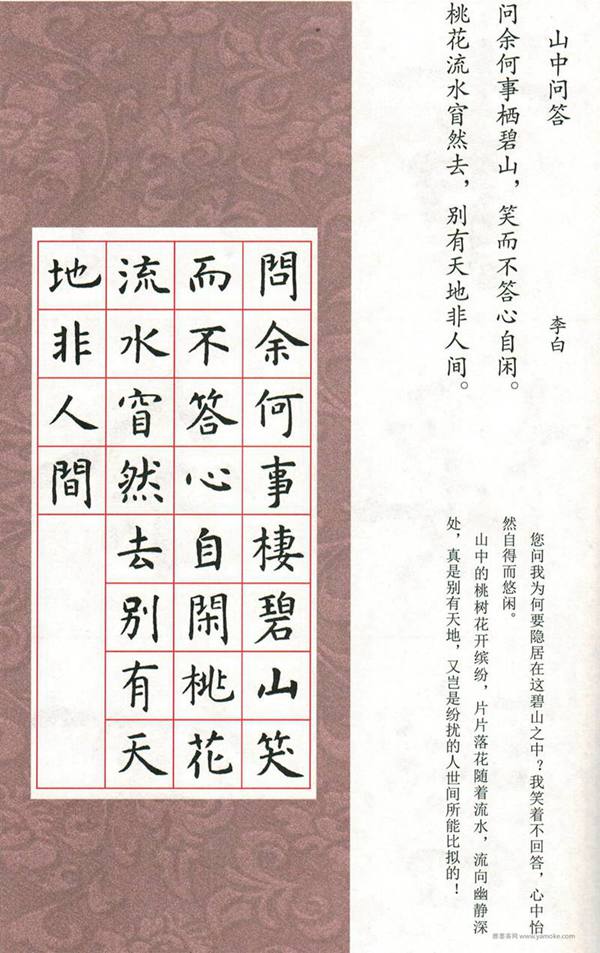 山中问答
李白
问余何事栖碧山，笑而不答心自闲。
桃花流水窅然去，别有天地非人间。
您问我为何要隐居在这碧山之中？我笑着不回答，心中怡
然自得而悠闲。
山中的桃树花开缤纷，片片落花随着流水，流向幽静深
处，真是别有天地，又岂是纷扰的人世间所能比拟的！
問余何事棲碧山笑
而不答心自閑桃花
流水窅然去别有天
地非人間
雅墨客网 www.yamoke.com